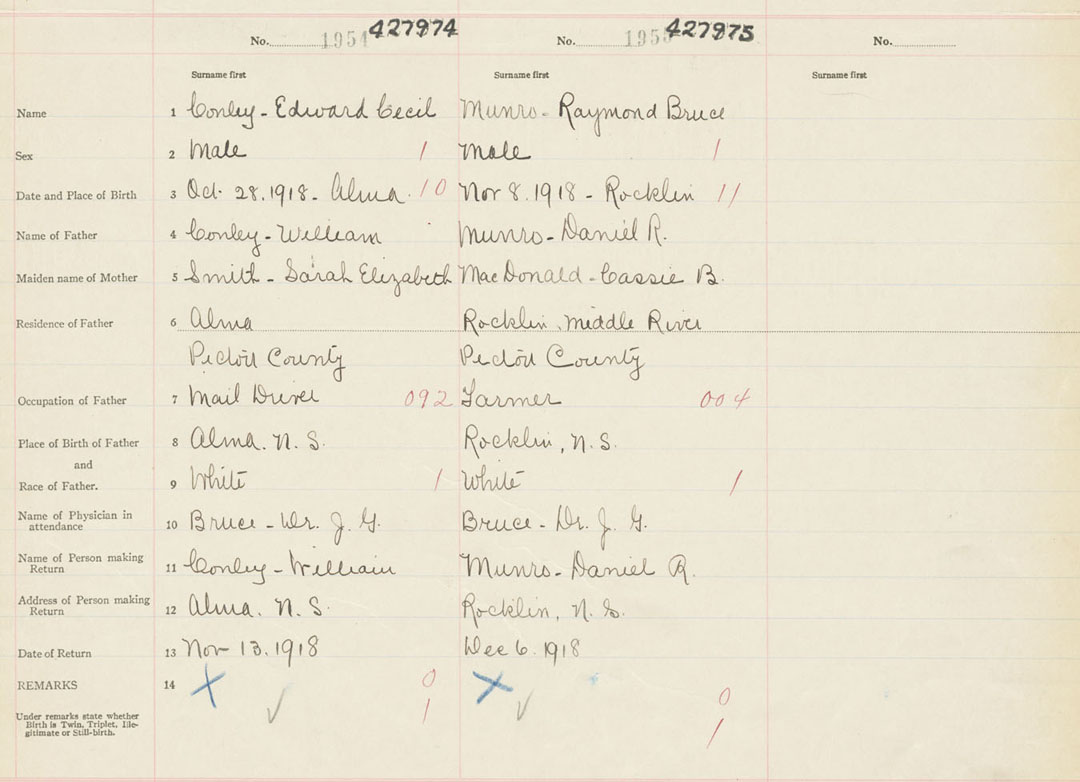 No. 1954 427974 No. 1955 427975 No.
Surname first Surname first Surname first
Name 1 Conley - Edward Cecil Munro - Raymond Bruce
Sex 2 Male 1 Male 1
Date and Place of Birth 3 Oct. 28.1918 - Alma. 10 Nov 8.1918 - Rocklin 11
Name of Father 4 Conley - William Munro - Daniel R.
Maiden name of Mother 5 Smith - Sarah Elizabeth MacDonald - Cassie B.
Residence of Father 6 Alma Rocklin, Middle River
Pictou County Pictou County
Occupation of Father 7 Mail Driver 092 Farmer 004
Place of Birth of Father 8 Alma. N. S. Rocklin, N. S.
and
Race of Father. 9 White 1 White 1
Name of Physician in
attendance 10 Bruce - Dr. J. G. Bruce - Dr. J. G.
Name of Person making
Return 11 Conley - William Munro - Daniel R.
Address of Person making
Return 12 Alma. N. S. Rocklin, N. S.
Date of Return 13 Nov 13.1918 Dec 6.1918
REMARKS 14 X 0 X 0
Under remarks state whether
Birth is Twin, Triplet, Ille-
gitimate or Still-birth. ✓ 1 ✓ 1